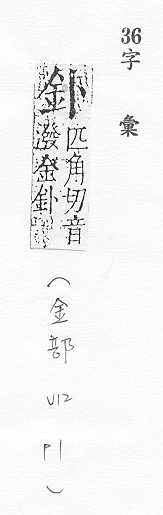 36
字彙
釙 匹角切音
潑金釙
(金部 U12 P1)